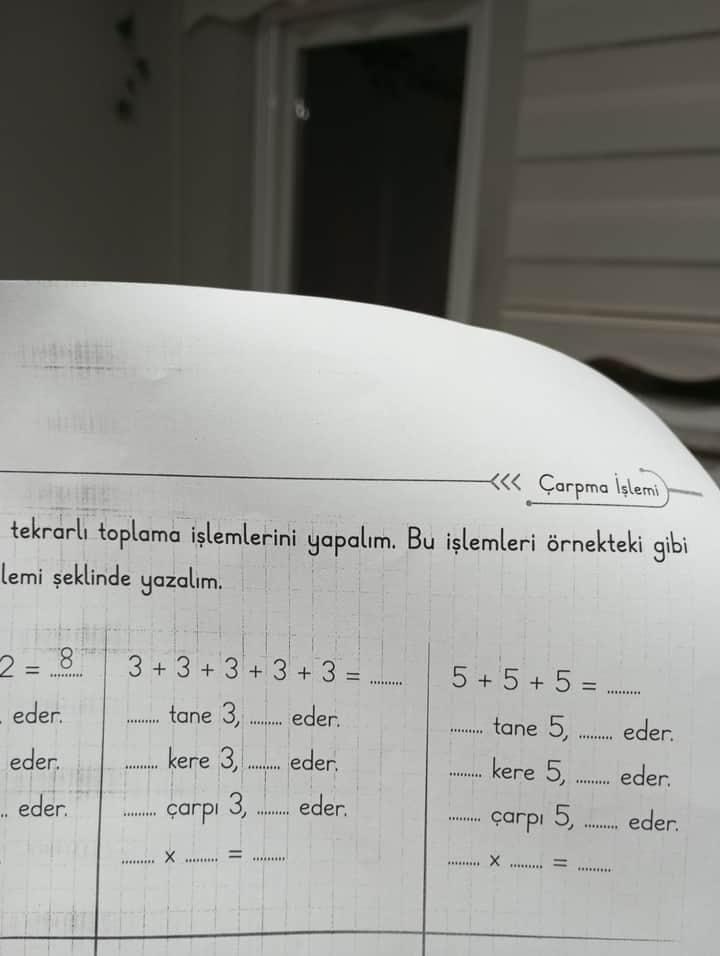 <<< Çarpma İşlemi
tekrarlı toplama işlemlerini yapalım. Bu işlemleri örnekteki gibi
lemi şeklinde yazalım.
2 = 8
eder.
eder.
.. eder.
3 + 3 + 3 + 3 + 3 = ........
........ tane 3, ........ eder.
........ kere 3, ........ eder.
........ çarpı 3, ........ eder.
........ x ........ = ........
5 + 5 + 5 = ........
........ tane 5, ........ eder.
........ kere 5, ........ eder.
........ çarpı 5, ........ eder.
........ x ........ = ........